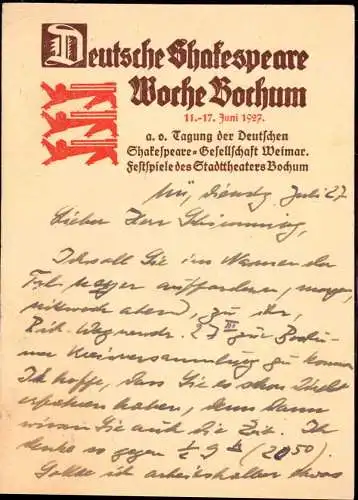 Deutsche Shakespeare
Woche Bochum
11.-17. Juni 1927.
a. o. Tagung der Deutschen
Shakespeare=Gesellschaft Weimar.
Festspiele des Stadttheaters Bochum
Juli 27
Lieber Herr
Ich soll Sie im Namen der
Frl. auffordern, morgen,
mittwoch abend, zu ihr,
Rich. Wagnerstr. 27 III zur
zu kommen
Ich hoffe, dass Sie es schon direkt
erfahren haben, denn dann
wissen Sie auch die Zeit. Ich
denke es gegen ½ 9 h (20 30).
Sollte ich arbeitshalber etwas